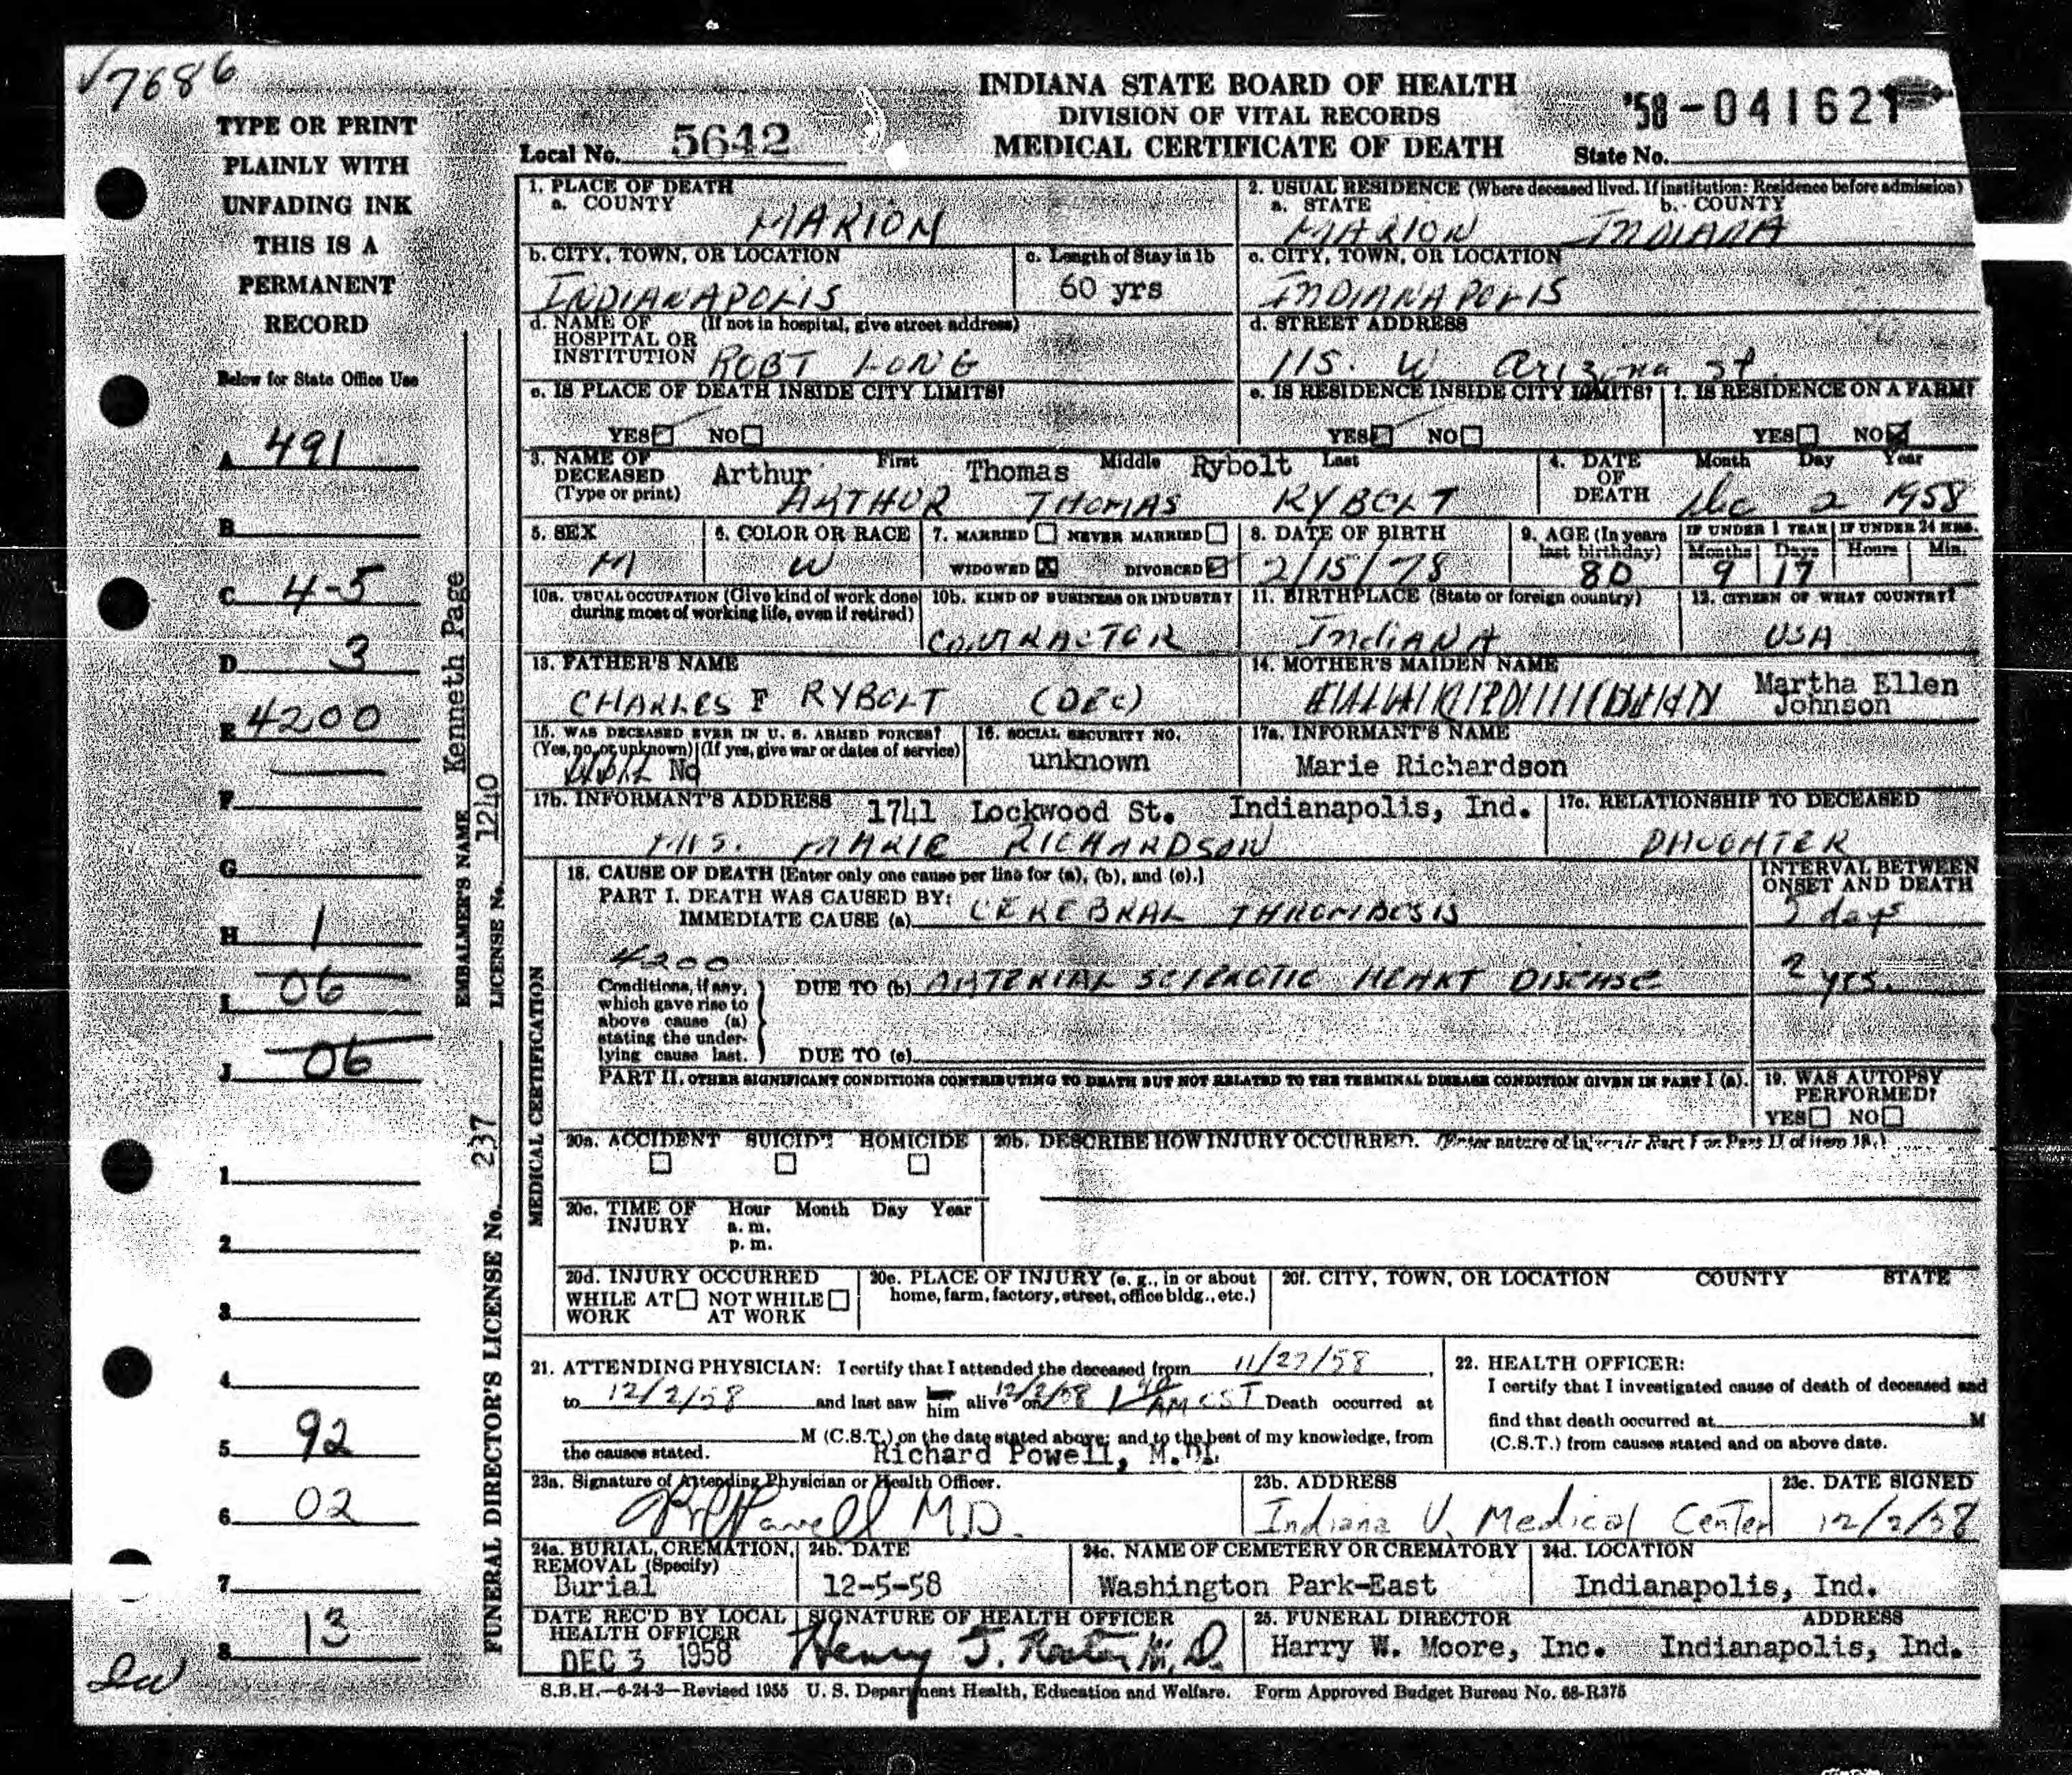 √7686
TYPE OR PRINT
PLAINLY WITH
UNFADING INK
THIS IS A
PERMANENT
RECORD
Below for State Office Use
A 491
B
C 4-5
D 3
E 4200
F
G
H 1
I 06
J 06
1
2
3
4
5 92
6 02
7
8 13
EMBALMER'S NAME Kenneth Page
LICENSE No. 1240
FUNERAL DIRECTOR'S LICENSE No. 237
INDIANA STATE BOARD OF HEALTH
DIVISION OF VITAL RECORDS
MEDICAL CERTIFICATE OF DEATH
Local No. 5642
'58-041621
State No.
1. PLACE OF DEATH
a. COUNTY MARION
2. USUAL RESIDENCE (Where deceased lived. If institution: Residence before admission)
a. STATE MARION b. COUNTY INDIANA
b. CITY, TOWN, OR LOCATION INDIANAPOLIS
c. Length of Stay in 1b 60 yrs
c. CITY, TOWN, OR LOCATION INDIANAPOLIS
d. NAME OF (If not in hospital, give street address)
HOSPITAL OR
INSTITUTION ROBT LONG
d. STREET ADDRESS
115. W Arizona St.
e. IS PLACE OF DEATH INSIDE CITY LIMITS?
YES NO
e. IS RESIDENCE INSIDE CITY LIMITS?
YES NO
f. IS RESIDENCE ON A FARM?
YES NO
3. NAME OF DECEASED (Type or print)
First Middle Last
Arthur Thomas Rybolt
ARTHUR THOMAS RYBOLT
4. DATE OF DEATH Month Day Year
Dec 2 1958
5. SEX M
6. COLOR OR RACE W
7. MARRIED NEVER MARRIED
WIDOWED DIVORCED
8. DATE OF BIRTH 2/15/78
9. AGE (In years last birthday) 80
IF UNDER 1 YEAR Months 9 Days 17
IF UNDER 24 HRS. Hours Min.
10a. USUAL OCCUPATION (Give kind of work done during most of working life, even if retired)
10b. KIND OF BUSINESS OR INDUSTRY
CONTRACTOR
11. BIRTHPLACE (State or foreign country)
INDIANA
12. CITIZEN OF WHAT COUNTRY?
USA
13. FATHER'S NAME
CHARLES F RYBOLT (DEC)
14. MOTHER'S MAIDEN NAME
Martha Ellen
Johnson
15. WAS DECEASED EVER IN U. S. ARMED FORCES?
(Yes, no, or unknown) (If yes, give war or dates of service)
No
16. SOCIAL SECURITY NO.
unknown
17a. INFORMANT'S NAME
Marie Richardson
17b. INFORMANT'S ADDRESS 1741 Lockwood St. Indianapolis, Ind.
MRS. MARIE RICHARDSON
17c. RELATIONSHIP TO DECEASED
DAUGHTER
MEDICAL CERTIFICATION
18. CAUSE OF DEATH [Enter only one cause per line for (a), (b), and (c).]
PART I. DEATH WAS CAUSED BY:
IMMEDIATE CAUSE (a) CEREBRAL THROMBOSIS
INTERVAL BETWEEN
ONSET AND DEATH
days
4200
Conditions, if any,
which gave rise to
above cause (a)
stating the under-
lying cause last.
DUE TO (b) ARTERIAL SCLEROTIC HEART DISEASE
2 yrs.
DUE TO (c)
PART II. OTHER SIGNIFICANT CONDITIONS CONTRIBUTING TO DEATH BUT NOT RELATED TO THE TERMINAL DISEASE CONDITION GIVEN IN PART I (a).
19. WAS AUTOPSY
PERFORMED?
YES NO
20a. ACCIDENT SUICIDE HOMICIDE
20b. DESCRIBE HOW INJURY OCCURRED. (Enter nature of injury in Part I or Part II of item 18.)
20c. TIME OF INJURY Hour Month Day Year
a. m.
p. m.
20d. INJURY OCCURRED
WHILE AT WORK NOT WHILE AT WORK
20e. PLACE OF INJURY (e. g., in or about
home, farm, factory, street, office bldg., etc.)
20f. CITY, TOWN, OR LOCATION COUNTY STATE
21. ATTENDING PHYSICIAN: I certify that I attended the deceased from 11/27/58,
to 12/2/58 and last saw him alive on 12/2/58 AM CST Death occurred at
M (C.S.T.) on the date stated above; and to the best of my knowledge, from
the causes stated. Richard Powell, M.D.
22. HEALTH OFFICER:
I certify that I investigated cause of death of deceased and
find that death occurred at M
(C.S.T.) from causes stated and on above date.
23a. Signature of Attending Physician or Health Officer.
Powell M.D.
23b. ADDRESS
Indiana U. Medical Center
23c. DATE SIGNED
12/2/58
24a. BURIAL, CREMATION,
REMOVAL (Specify)
Burial
24b. DATE
12-5-58
24c. NAME OF CEMETERY OR CREMATORY
Washington Park-East
24d. LOCATION
Indianapolis, Ind.
DATE REC'D BY LOCAL
HEALTH OFFICER
DEC 3 1958
SIGNATURE OF HEALTH OFFICER
Henry M.D.
25. FUNERAL DIRECTOR ADDRESS
Harry W. Moore, Inc. Indianapolis, Ind.
S.B.H.—6-24-3—Revised 1955 U. S. Department Health, Education and Welfare. Form Approved Budget Bureau No. 68-R375